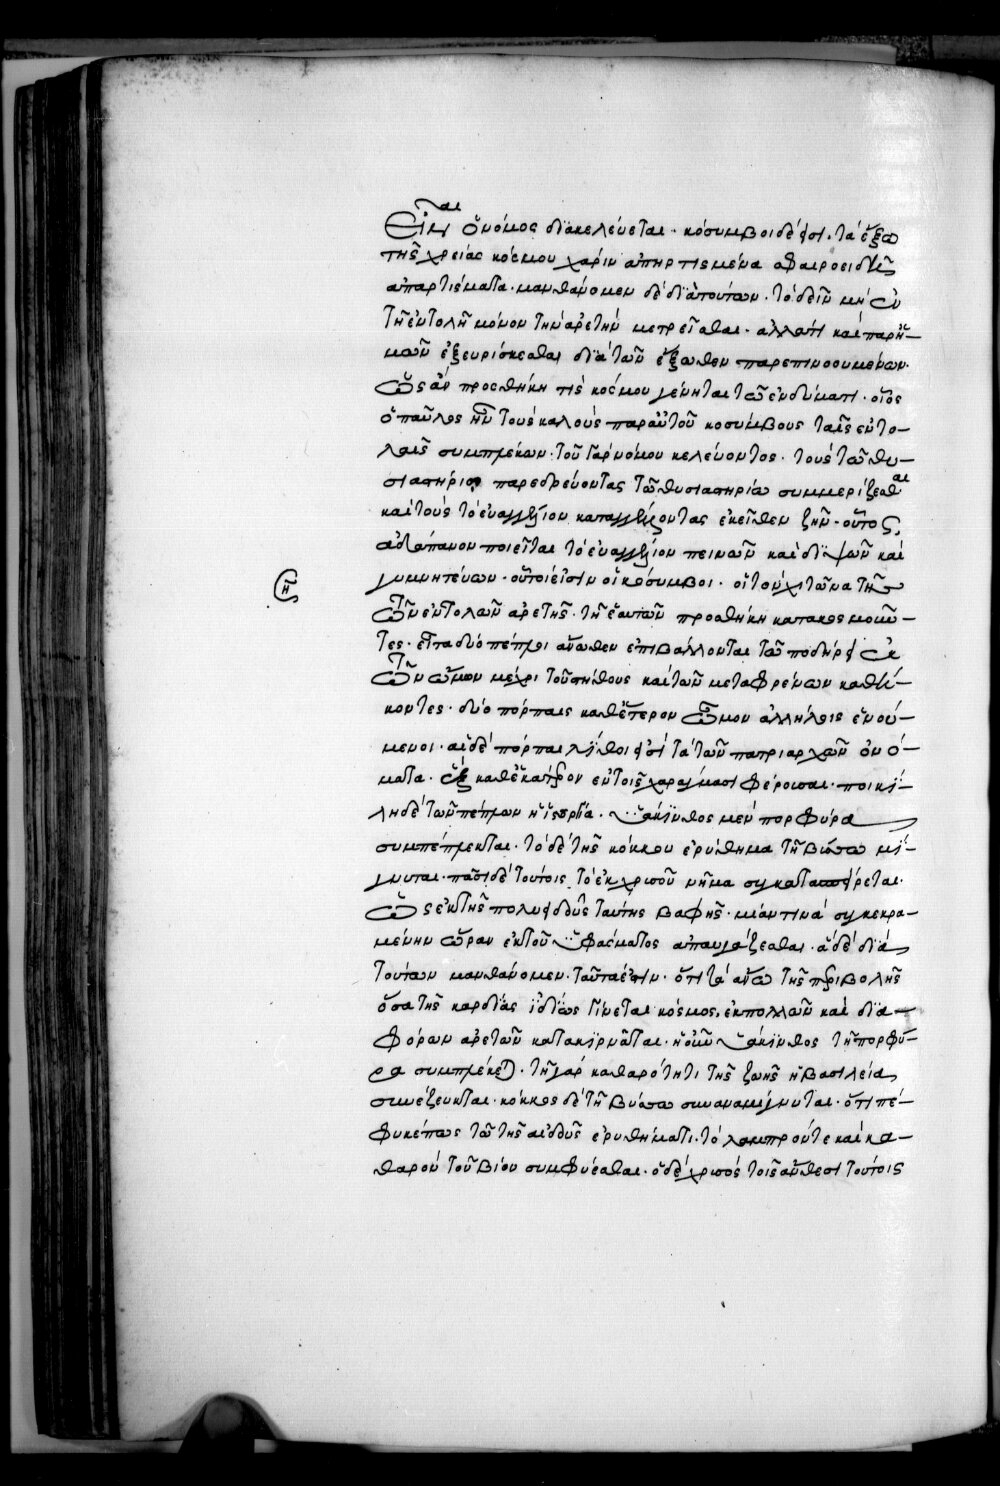 εἶναι ὁ νόμος διακελεύεται· κόσυμβοι δέ εἰσι, τὰ ἔξω
τῆς χρείας κόσμου χάριν ἀπηρτισμένα σφαιροειδῆ
ἀπαρτίσματα· μανθάνομεν δὲ διὰ τούτων· τὸ δεῖν μὴ ἐν
τῇ ἐντολῇ μόνον τὴν ἀρετὴν μετρεῖσθαι· ἀλλά τι καὶ παρ' ἡ-
μῶν ἐξευρίσκεσθαι διὰ τῶν ἔξωθεν παρεπινοουμένων·
ὡς ἂν προσθήκη τις κόσμου γένηται τῷ ἐνδύματι· οἷος
ὁ παῦλος ἦν τοὺς καλοὺς παρ' αὐτοῦ κοσύμβους ταῖς ἐντο-
λαῖς συμπλέκων· τοῦ γὰρ νόμου κελεύοντος· τοὺς τῷ θυ-
σιαστηρίῳ παρεδρεύοντας τῷ θυσιαστηρίῳ συμμερίζεσθαι
καὶ τοὺς τὸ εὐαγγέλιον καταγγέλλοντας ἐκεῖθεν ζῆν· οὗτος
ἀδάπανον ποιεῖται τὸ εὐαγγέλιον πεινῶν καὶ διψῶν καὶ
γυμνητεύων· οὗτοί εἰσιν οἱ κόσυμβοι· οἱ τὸν χιτῶνα τῆς
τῶν ἐντολῶν ἀρετῆς· τῇ ἑαυτῶν προσθήκη κατακοσμοῦν-
τες· εἶτα δύο πέπλοι ἄνωθεν ἐπιβάλλονται τῷ ποδήρει ἐκ
τῶν ὤμων μέχρι τοῦ στήθους καὶ τῶν μεταφρένων καθή-
κοντες· δύο πόρπαις καθ' ἕτερον ὦμον ἀλλήλοις ἑνού-
μενοι· αἱ δὲ πόρπαι λίθοι εἰσὶ τὰ τῶν πατριαρχῶν ὀνό-
ματα· ἓξ καθ' ἑκάτερον ἐν τοῖς χαράγμασι φέρουσαι· ποικί-
λη δὲ τῶν πέπλων ἡ ἱστορία· ὑάκινθος μὲν πορφύρα
συμπέπλεκται· τὸ δὲ τῆς κόκκου ἐρύθημα τῇ βύσσῳ μί-
γνυται· πᾶσι δὲ τούτοις τὸ ἐκ χρυσοῦ νῆμα συγκατασπείρεται·
ὡς ἐκ τῆς πολυειδοῦς ταύτης βαφῆς· μίαν τινὰ συγκεκρα-
μένην ὥραν ἐκ τοῦ ὑφάσματος ἀπαυγάζεσθαι· ἃ δὲ διὰ
τούτων μανθάνομεν· ταῦτά ἐστιν· ὅτι τὰ ἄνω τῆς περιβολῆς
ὅσα τῆς καρδίας ἰδίως γίνεται κόσμος, ἐκ πολλῶν καὶ δια-
φόρων ἀρετῶν κατακιρνᾶται· ἡ οὖν ὑάκινθος τῇ πορφύ-
ρα συμπλέκεται· τῇ γὰρ καθαρότητι τῆς ζωῆς ἡ βασιλεία
συνέζευκται· κόκκος δὲ τῇ βύσσῳ συναναμίγνυται· ὅτι πέ-
φυκέ πως τῷ τῆς αἰδοῦς ἐρυθήματι· τὸ λαμπρόν τε καὶ κα-
θαρὸν τοῦ βίου συμφύεσθαι· ὁ δὲ χρυσὸς τοῖς ἄνθεσι τούτοις